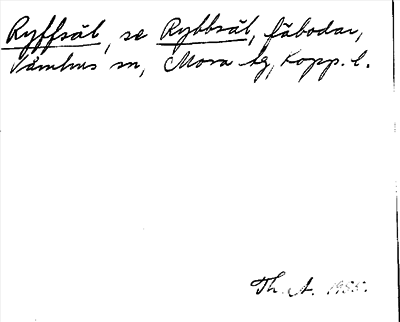 Ryffsäl, se Rybbsäl, fäbodar,
Våmhus sn, Mora tg, Kopp. l.
Th. A. 1935.